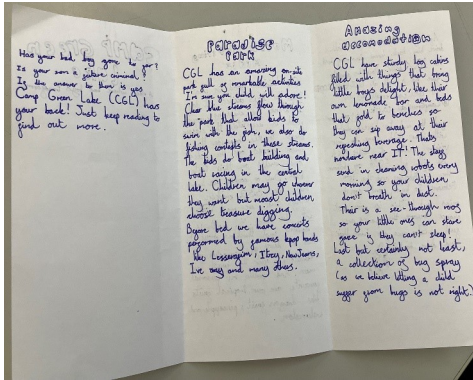 Has your bad boy gone to far?
Is your son a future criminal?
Is the answer to them is yes
Camp Green Lake (CGL) has
your back! Just keep reading to
find out more.
Paradise
Park
CGL has an amazing on-site
park full of remarkable activities
I'm sure your child will adore!
Clear blue streams flow through
the park that allow kids to
swim with the fish, we also do
fishing contests in these streams.
The kids do boat building and
boat racing in the central
lake. Children may go wherever
they want but moast children
choose treasure digging.
Before bed we have concerts
performed by famous kpop bands
like Lesserafim, Itzy, NewJeans,
Ive any and many others.
Amazing
accomodation
CGL have sturdy log cabins
filled with things that bring
little boys delight, like their
own lemonade bar and beds
that fold to benches so
they can sip away at their
refreshing beverage. Thats
nowhere near IT! The stay
send in cleaning robots every
morning so your children
don't breath in dust.
Their is a see-through roof
so your little ones can stare
gaze if they can't sleep!
Last but certainly not least,
a collection of bug spray
(as we believe letting a child
suffer from bugs is not right.)